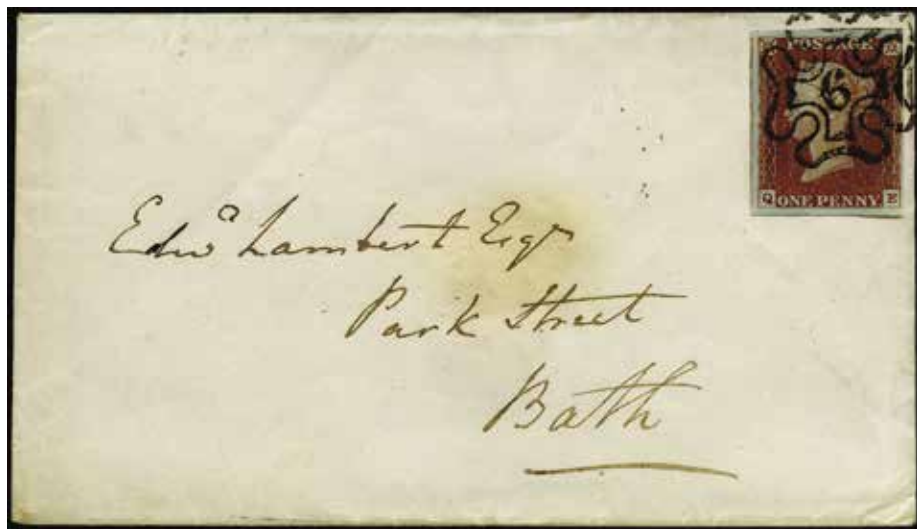 POSTAGE
6
Q ONE PENNY E
Edwd Lambert Esqr
Park Street
Bath